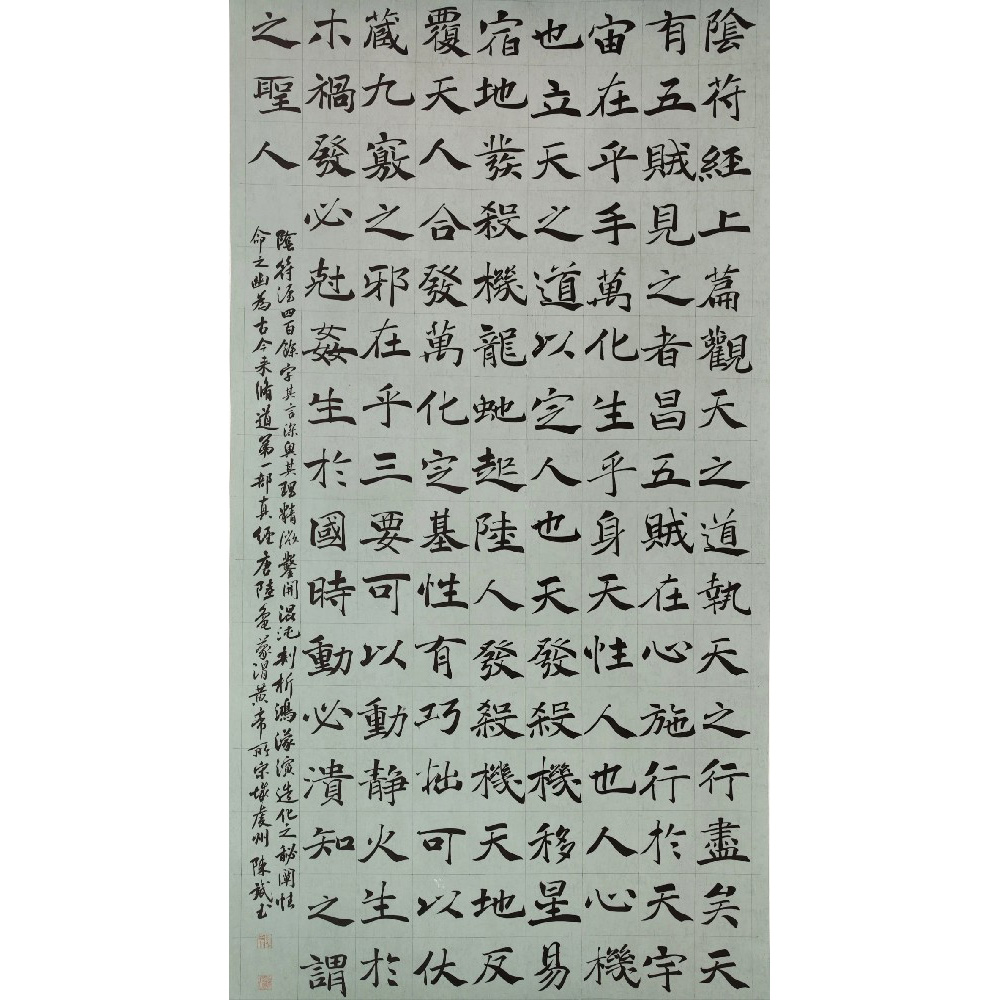 陰符經上篇觀天之道執天之行盡矣天
有五賊見之者昌五賊在心施行於天宇
宙在乎手萬化生乎身天性人也人心機
也立天之道以定人也天發殺機移星易
宿地發殺機龍虵起陸人發殺機天地反
覆天人合發萬化定基性有巧拙可以伏
藏九竅之邪在乎三要可以動靜火生於
木禍發必尅姦生於國時動必潰知之謂
之聖人
陰符經四百餘字其言深奧其理精微鑿開混沌剖析鴻濛演造化之秘闡性
命之幽為古今來脩道第一部真經唐陸龜蒙謂黃帝所虔州陳書